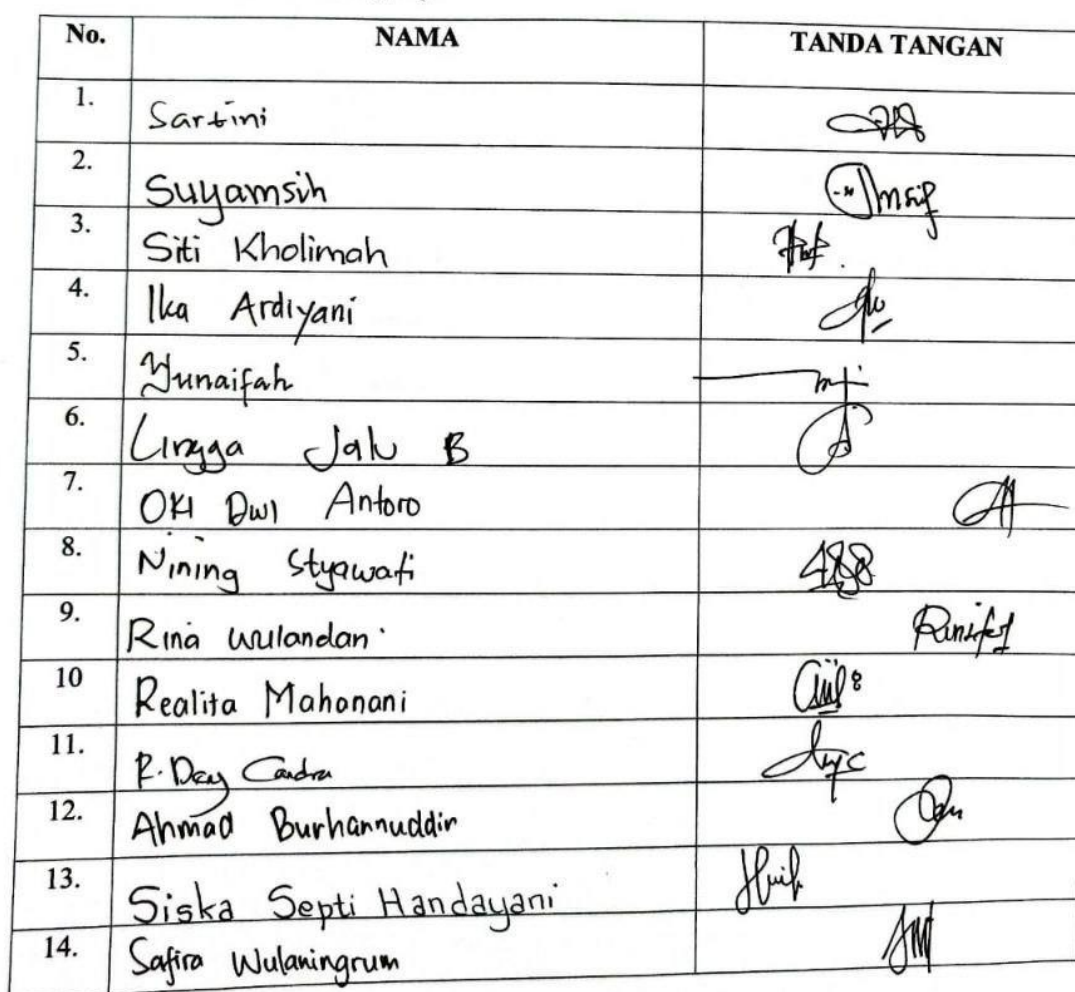 No. NAMA TANDA TANGAN
1. Sartini
2. Suyamsih
3. Siti Kholimah
4. Ika Ardiyani
5. Yunaifah
6. Lingga Jalu B
7. Oki Dwi Antoro
8. Nining Styawati
9. Rina wulandari
10 Realita Mahanani
11. R. Candra
12. Ahmad Burhannuddin
13. Siska Septi Handayani
14. Safira Wulaningrum